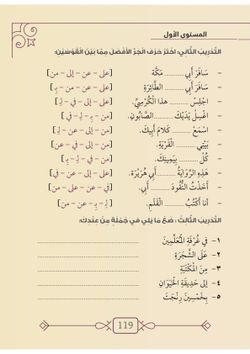 المستوى الأول
التَّدْرِيبُ الثَّانِي: اخْتَرْ حَرْفَ الْجَرِّ الأَفْضَلَ مِمَّا بَيْنَ الْقَوْسَيْنِ:
- سَافَرَ أَبِي ........ مَكَّةَ [على – عن – إلى – من]
- سَافَرَ أَبِي ........ الطَّائِرَةِ [على – عن – من – بِـ]
- اجْلِسْ ........ هذا الْكُرْسِيِّ. [على – إلى – في – لِـ]
- اغْسِلْ يَدَيْكَ ........ الصَّابُونِ. [من – بِـ – لِـ – في]
- اسْمَعْ ........ كَلَامَ أَبِيكَ. [على – إلى – في – لِـ]
- بَيْتِي ........ الْقَرْيَةِ. [من – إلى – في – عن]
- كُلْ ........ بِيَمِينِكَ. [من – إلى – في – عن]
- هَذِهِ الرِّوَايَةُ ........ أَبِي هُرَيْرَةَ. [على – إلى – عن – في]
- أَخَذْتُ النُّقُودَ ........ أَبِي. [من – في – على – عن]
- أنا أَكْتُبُ ........ الْقَلَمِ. [لِـ – بِـ – عن – من]
التَّدْرِيبُ الثَّالِثُ: ضَعْ مَا يَلِي فِي جُمْلَةٍ مِنْ عِنْدِكَ:
١- فِي غُرْفَةِ الْمُعَلِّمِينَ
٢- عَلَى الشَّجَرَةِ
٣- مِنَ الْمَكْتَبَةِ
٤- إِلَى حَدِيقَةِ الْحَيَوَانِ
٥- بِخَمْسِينَ رِنْجَتْ
119